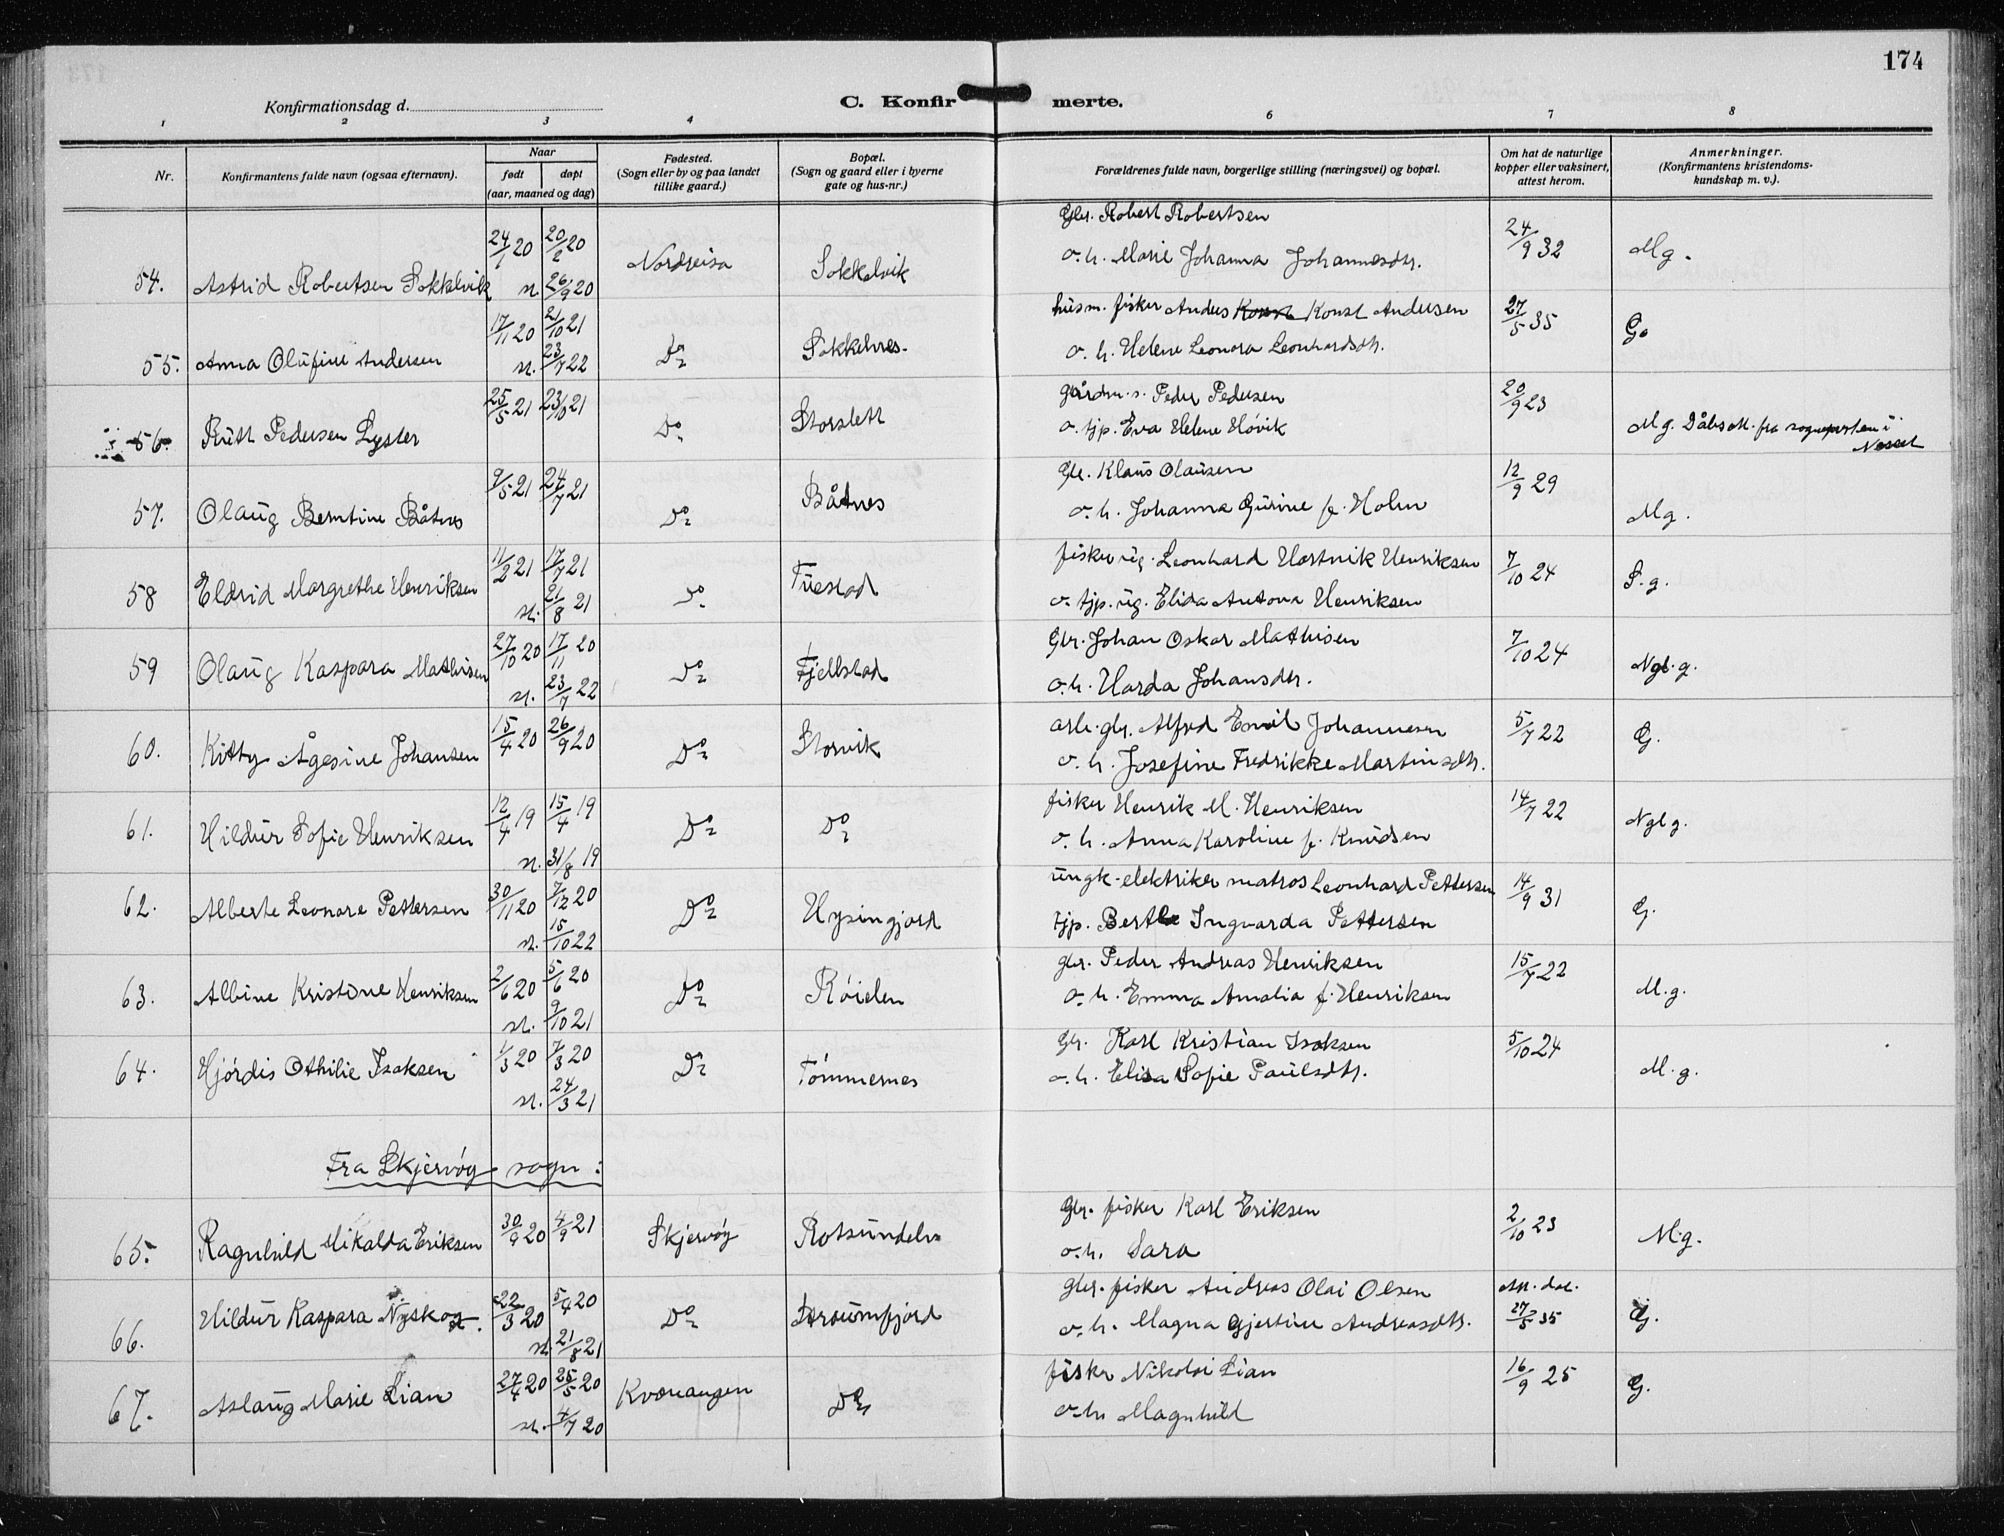 174
Konfirmationsdag d.
C. Konfirmerte.
1 2 3 4 6 7 8
Nr. Konfirmantens fulde navn (ogsaa efternavn). Naar født døpt (aar, maaned og dag) Fødested. (Sogn eller by og paa landet tillike gaard.) Bopæl. (Sogn og gaard eller i byerne gate og hus-nr.) Forældrenes fulde navn, borgerlige stilling (næringsvei) og bopæl. Om hat de naturlige kopper eller vaksinert, attest herom. Anmerkninger. (Konfirmantens kristendoms-kundskap m. v.).
24/1 20 20/2 20 Gbr. Robert Robertsen 24/9 32
54. Astrid Robertsen Sokkelvik n. 26/9 20 Nordreisa Sokkelvik o. h. Marie Johanna Johannesdtr. Mg.
17/11 20 21/10 21 husm. fisker Anders Konst Andersen 27/5 35
55. Anna Olufine Andersen n. 23/7 22 Do Sokkelnes. o. h. Helene Leonora Leonhardsdtr. G.
25/5 21 23/10 21 gårdm. s. Peder Pedersen 20/9 23
56. Rutt Pedersen Lyster Do Storslett o. tjp. Eva Helene Høvik Mg. Dåbsatt. fra sogneprsten i Nesset
9/5 21 24/7 21 Gbr. Klaus Olausen 12/9 29
57. Olaug Berntine Båtnes Do Båtnes o. h. Johanna Gurine f. Holm Mg.
11/2 21 17/7 21 fisker ug. Leonhard Hartvik Henriksen 7/10 24
58 Eldrid Margrethe Henriksen n. 21/8 21 Do Tuestad o. tjp. ug. Elida Antona Henriksen S.g.
27/10 20 17/11 20 Gbr. Johan Oskar Mathisen 7/10 24
59 Olaug Kaspara Mathisen n. 23/7 22 Do Fjellstad o. h. Harda Johansdtr. Ngl.g.
15/4 20 26/9 20 arb. gbr. Alfred Emil Johannesen 5/7 22
60. Kitty Ågesine Johansen Do Storvik o. h. Josefine Fredrikke Martinsdtr. G.
12/4 19 15/4 19 fisker Henrik M. Henriksen 14/7 22
61. Hildur Sofie Henriksen n. 31/8 19 Do Do o. h. Anna Karoline f. Knudsen Ngl g.
30/11 20 7/12 20 ungk. elektriker matros Leonhard Pettersen 14/9 31
62. Alberte Leonore Pettersen n. 15/10 22 Do Hysingjord tjp. Berthe Ingvarda Pettersen G.
2/6 20 5/6 20 gbr. Peder Andreas Henriksen 15/7 22
63. Albine Kristine Henriksen n. 9/10 21 Do Røielen o. h. Emma Amalia f. Henriksen M.g.
1/3 20 7/3 20 Gbr. Karl Kristian Isaksen 5/10 24
64. Hjördis Othilie Isaksen n. 24/3 21 Do Tömmernes o. h. Elisa Sofie Paulsdtr. M.g.
Fra Skjervøy sogn:
30/9 20 4/9 21 Gbr. fisker Karl Eriksen 2/10 23
65. Ragnhild Mikalda Eriksen Skjervøy Rotsundelv o. h. Sara M.g.
22/3 20 5/4 20 gbr. fisker Andreas Olai Olsen
66. Hildur Kaspara Nyskog. n. 21/8 21 Do Straumfjord o. h. Magna Gjertine Andreasdtr. 27/5 35 G.
27/4 20 25/5 20 fisker Nikolai Lian 16/9 25
67. Aslaug Marie Lian n. 4/7 20 Kvænangen Do o. h. Magnhild G.